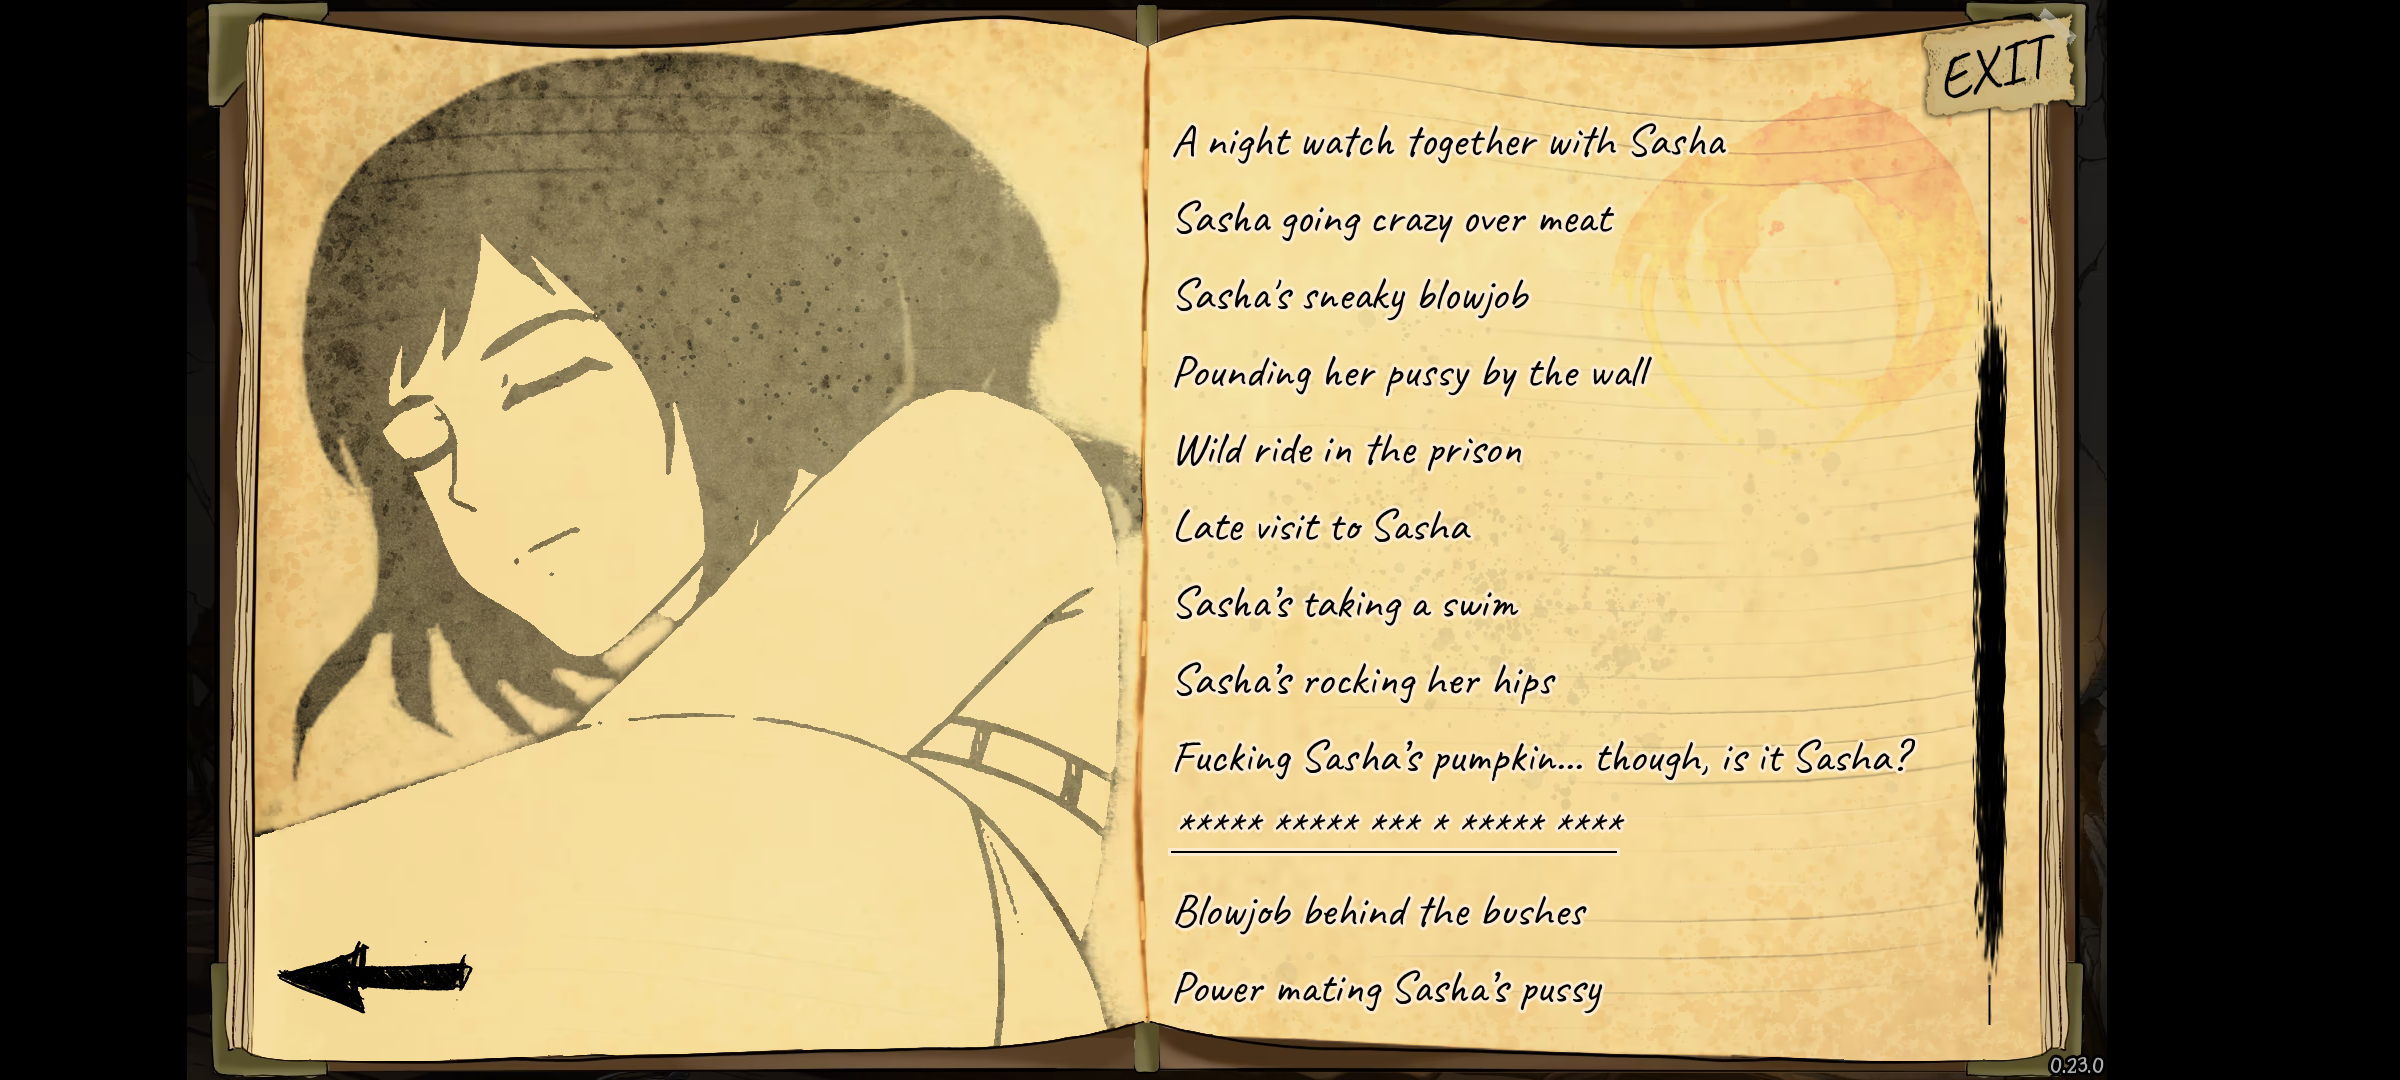 EXIT
A night watch together with Sasha
Sasha going crazy over meat
Sasha's sneaky blowjob
Pounding her pussy by the wall
Wild ride in the prison
Late visit to Sasha
Sasha's taking a swim
Sasha's rocking her hips
Fucking Sasha's pumpkin... though, is it Sasha?
***** ***** *** * ***** ****
Blowjob behind the bushes
Power mating Sasha's pussy
0.23.0